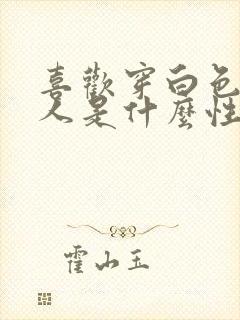 喜歡穿白色
人是什麼性
霍山玉